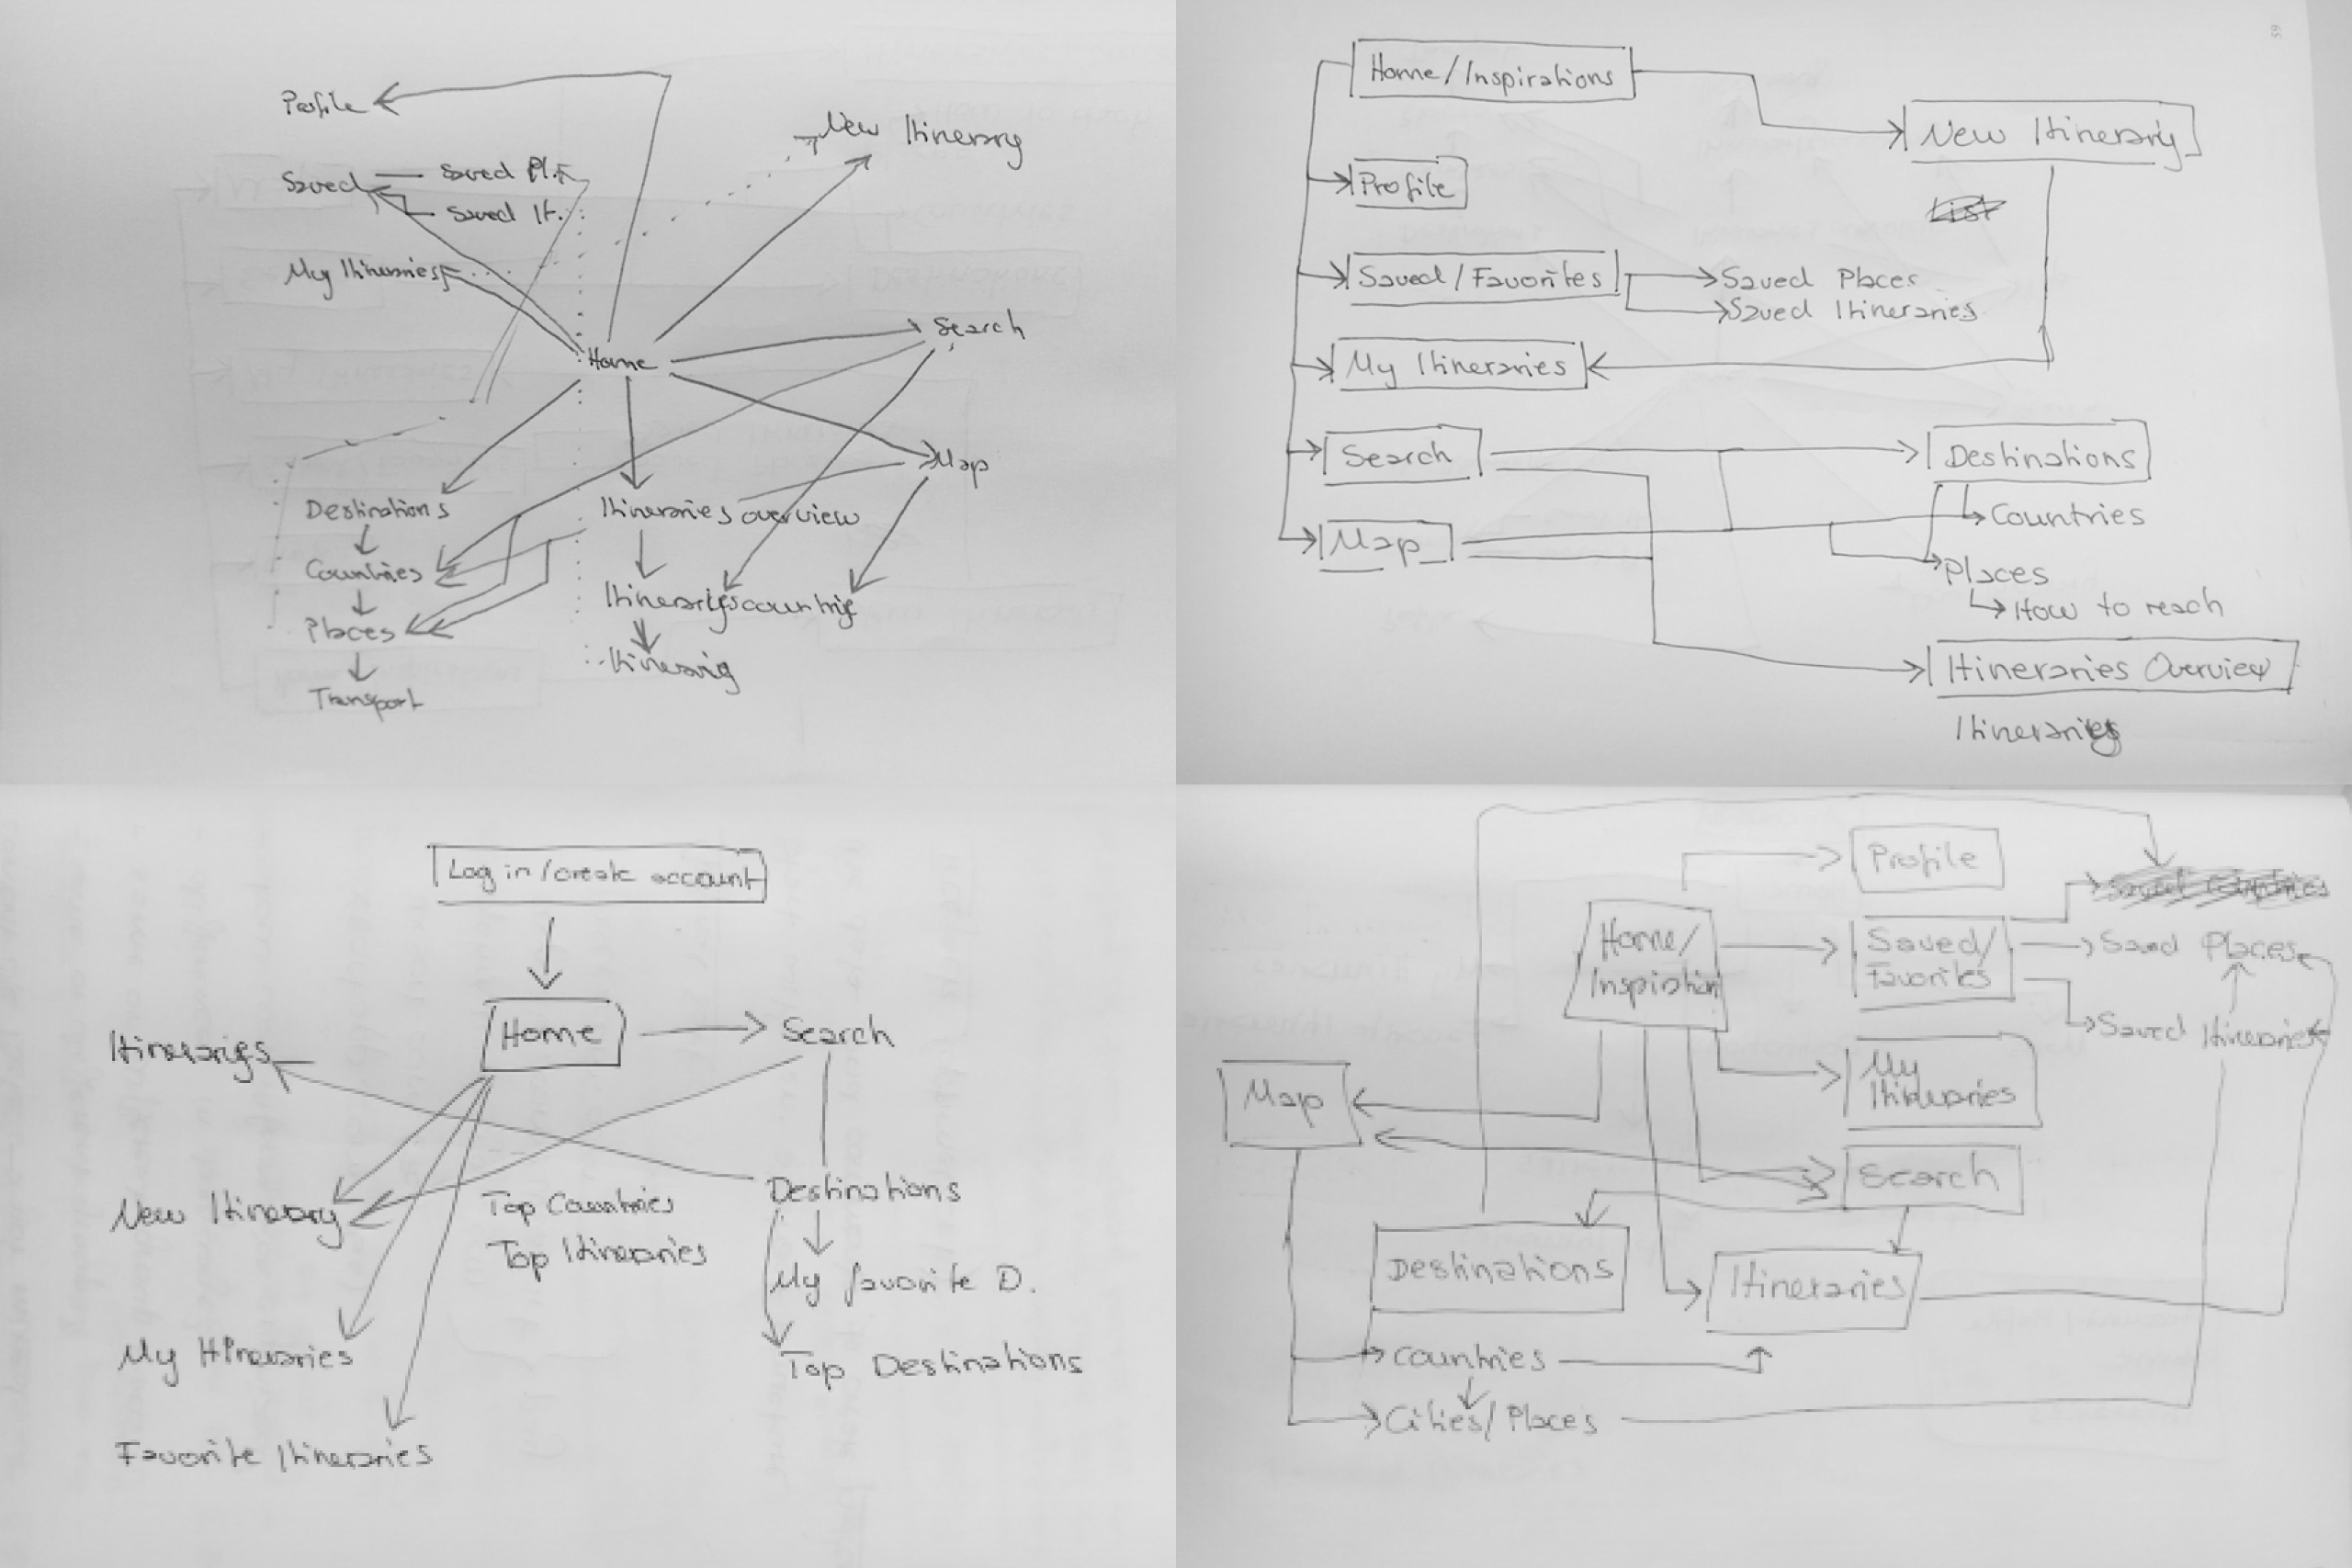 Profile
New Itinerary
Saved
Saved Pl.
Saved It.
My Itineraries
Home
Search
Map
Destinations
Itineraries overview
Countries
Itineraries countrie
Places
Itinerarie
Transport
65
Home/Inspirations
New Itinerary
List
Profile
Saved/Favorites
Saved Places
Saved Itineraries
My Itineraries
Search
Destinations
Countries
Map
Places
How to reach
Itineraries Overview
Itineraries
Log in/create account
Home
Search
Itineraries
New Itinerary
Top Countries
Top Itineraries
Destinations
My favorite D.
My Itineraries
Top Destinations
Favorite Itineraries
Profile
Saved Countries
Home/
Inspiration
Saved/
Favorites
Saved Places
Saved Itineraries
Map
My
Itineraries
Search
Destinations
Itineraries
Countries
Cities/Places